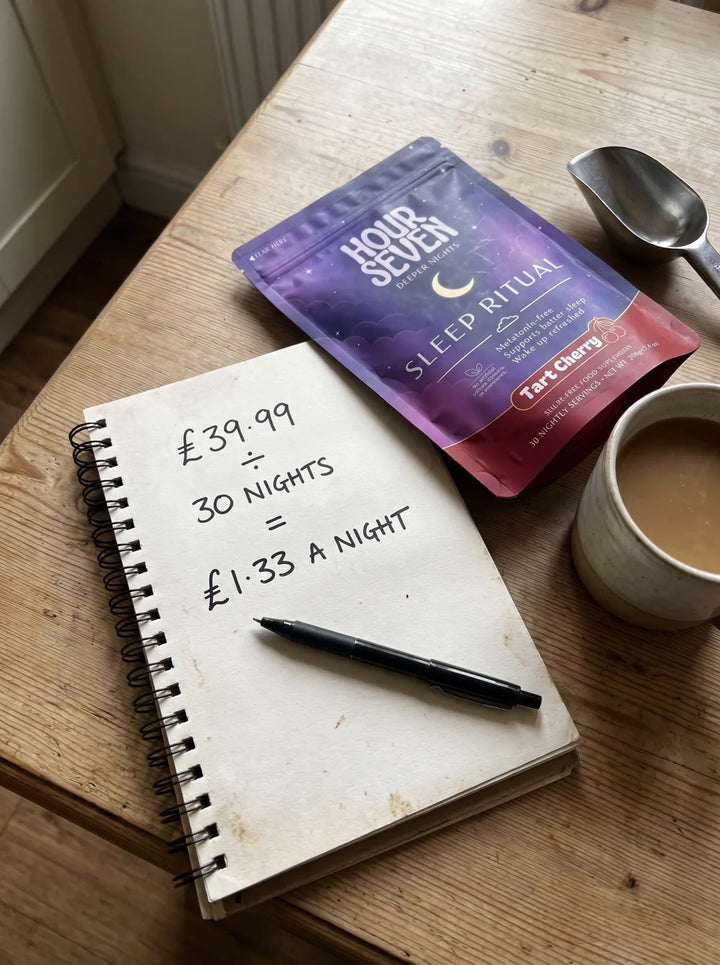 £39.99
÷
30 NIGHTS
=
£1.33 A NIGHT
TEAR HERE
HOUR
SEVEN
DEEPER NIGHTS
SLEEP RITUAL
Melatonin-free
Supports batter sleep
Wake up refreshed
Tart Cherry
FOOD SUPPLEMENT
30 NIGHTLY SERVINGS • NET WT